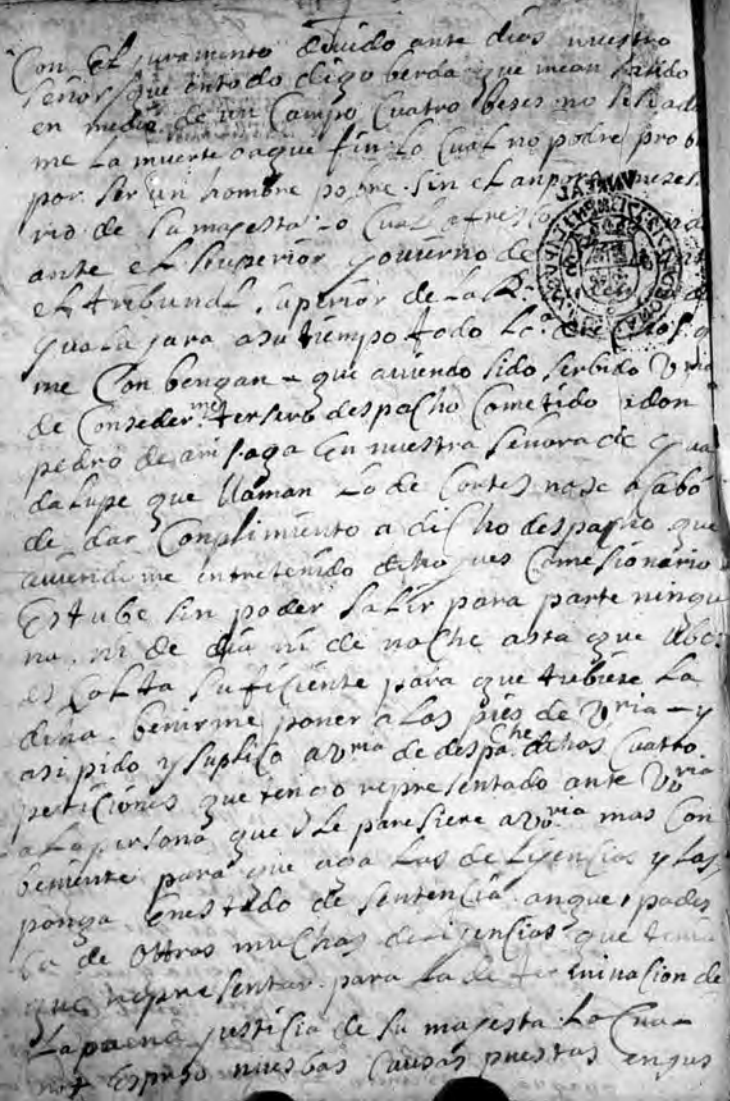 Con El juramento devido ante dios nuestro
señor que en todo digo berda que mean salido
en medio de un Campo Cuatro beses no se
me La muerte oaque fin Lo Cual no podre prob
por ser un hombre pobre sin el anporo neses
rio de su magesta Lo Cual
ante el superior govierno de
el tribunal superior de La R.
guaLajara asu tiempo todo Lo
me Conbengan que aviendo sido serbido Vria
de Conseder me tersero despacho Cometido adon
pedro de arisaga En nuestra señora de gua
daLupe que llaman Lo de Cortes no se acabó
de dar Conplimiento a dicho despacho que
aviendome entretenido dicho jues Comesionario
Estube sin poder salir para parte ningu
na ni de dia ni de noche asta que ubo
esColta suficiente para que tubiese La
dicha benirme poner a Los pies de Vria y
asi pido y supLico aVria de despache dichos Cuatro
peticiones que tengo representado ante Vria
a La persona que Le paresiere aVria mas Con
beniente para que aga Las deLigencias y Las
ponga En estado de sentencia anque pades
Ca de Ottras muchas deligencias que tenia
que representar para La determinacion de
La justicia de su magesta La Cua
Espreso nuebas Causas puestas en sus